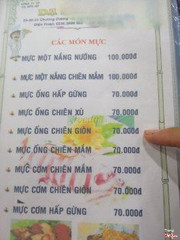 CÁC MÓN MỰC
MỰC MỘT NẮNG NƯỚNG 100.000đ
MỰC MỘT NẮNG CHIÊN MẮM 100.000đ
MỰC ỐNG HẤP GỪNG 70.000đ
MỰC ỐNG CHIÊN XÙ 70.000đ
MỰC ỐNG CHIÊN GIÒN 70.000đ
MỰC ỐNG CHIÊN MẮM 70.000đ
MỰC CƠM CHIÊN MẮM 70.000đ
MỰC CƠM CHIÊN GIÒN 70.000đ
MỰC CƠM HẤP GỪNG 70.000đ